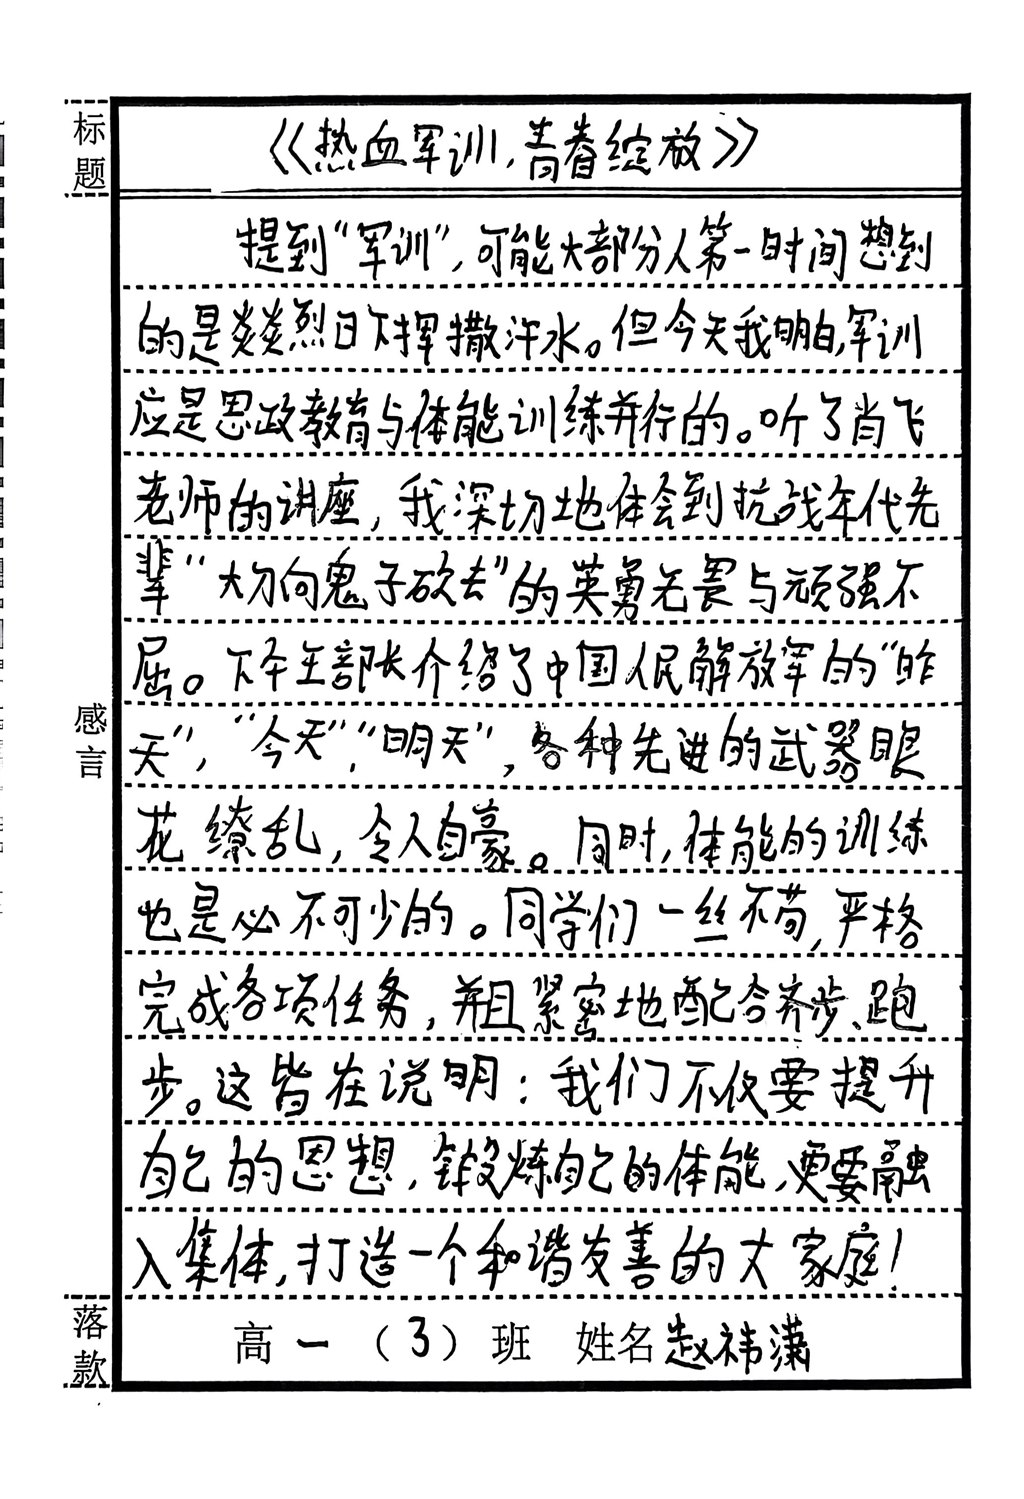 标题
《热血军训,青春绽放》
提到“军训”,可能大部分人第一时间想到
的是炎炎烈日下挥撒汗水。但今天我明白,军训
应是思政教育与体能训练并行的。听了肖飞
老师的讲座,我深切地体会到抗战年代先
辈“大刀向鬼子砍去”的英勇无畏与顽强不
屈。下午王部长介绍了中国人民解放军的“昨
天”,“今天”,“明天”,各种先进的武器眼
花缭乱,令人自豪。同时,体能的训练
也是必不可少的。同学们一丝不苟,严格
完成各项任务,并且紧密地配合齐步、跑
步。这皆在说明:我们不仅要提升
自己的思想,锻炼自己的体能,更要融
入集体,打造一个和谐友善的大家庭!
感言
落款
高一(3)班 姓名赵祎潇